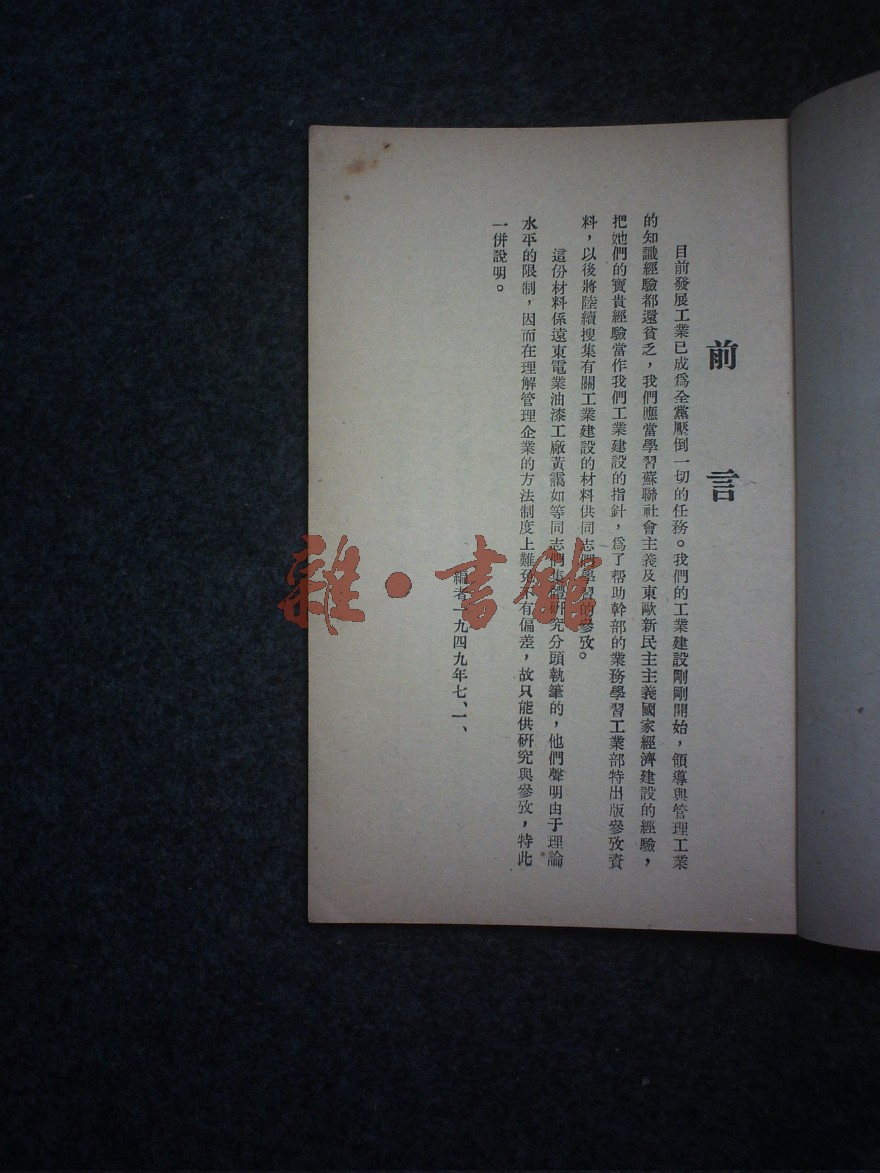 前言
目前發展工業已成爲全黨壓倒一切的任務。我們的工業建設剛剛開始，領導與管理工業
的知識經驗都還貧乏，我們應當學習蘇聯社會主義及東歐新民主主義國家經濟建設的經驗，
把她們的寶貴經驗當作我們工業建設的指針，爲了帮助幹部的業務學習工業部特出版參攷資
料，以後將陸續搜集有關工業建設的材料供同志們學習的參攷。
這份材料係遠東電業油漆工廠黃靄如等同志們集體研究分頭執筆的，他們聲明由于理論
水平的限制，因而在理解管理企業的方法制度上難免不有偏差，故只能供研究與參攷，特此
一併說明。
編者一九四九年七、一、
雜·書館